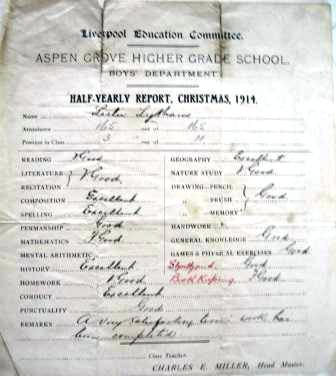 Liverpool Education Committee.
ASPEN GROVE HIGHER GRADE SCHOOL.
BOYS' DEPARTMENT.
HALF-YEARLY REPORT, CHRISTMAS, 1914.
Name
Attendance 165 out of 165
Position in Class 3 out of
READING V Good
LITERATURE V Good
RECITATION
COMPOSITION Excellent
SPELLING Excellent
PENMANSHIP Good
MATHEMATICS V Good
MENTAL ARITHMETIC
HISTORY Excellent
HOMEWORK V Good
CONDUCT Excellent
PUNCTUALITY Good
GEOGRAPHY Excellent
NATURE STUDY V Good
DRAWING—PENCIL Good
" BRUSH
" MEMORY
HANDWORK
GENERAL KNOWLEDGE Good
GAMES & PHYSICAL EXERCISES Good
Shorthand Good
Book Keeping V Good
REMARKS A very satisfactory term's work has
been completed
Class Teacher.
CHARLES E. MILLER, Head Master.